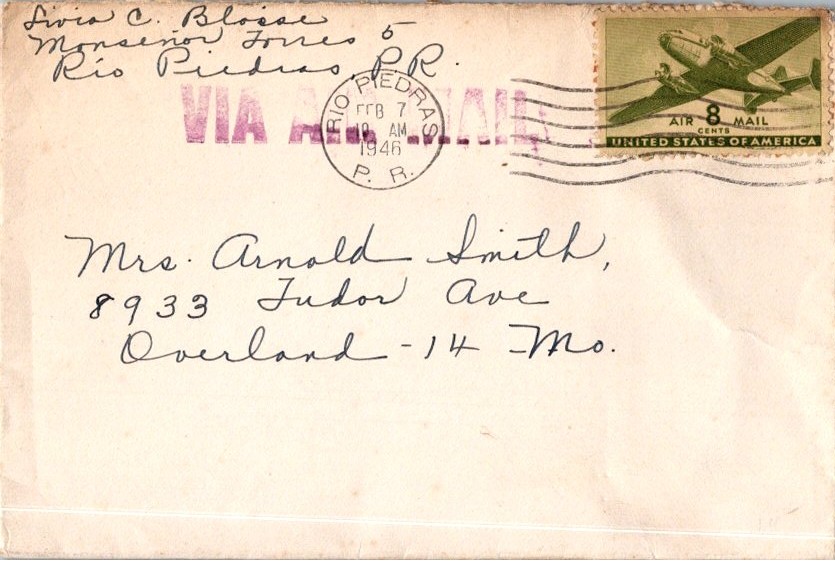 Livia C. Blasse
Monseñor Torres 5
Río Piedras, P.R.
VIA AIR MAIL
RIO PIEDRAS
FEB 7
10 AM
1946
P. R.
AIR 8 MAIL
CENTS
UNITED STATES OF AMERICA
Mrs. Arnold Smith,
8933 Tudor Ave
Overland -14 -Mo.